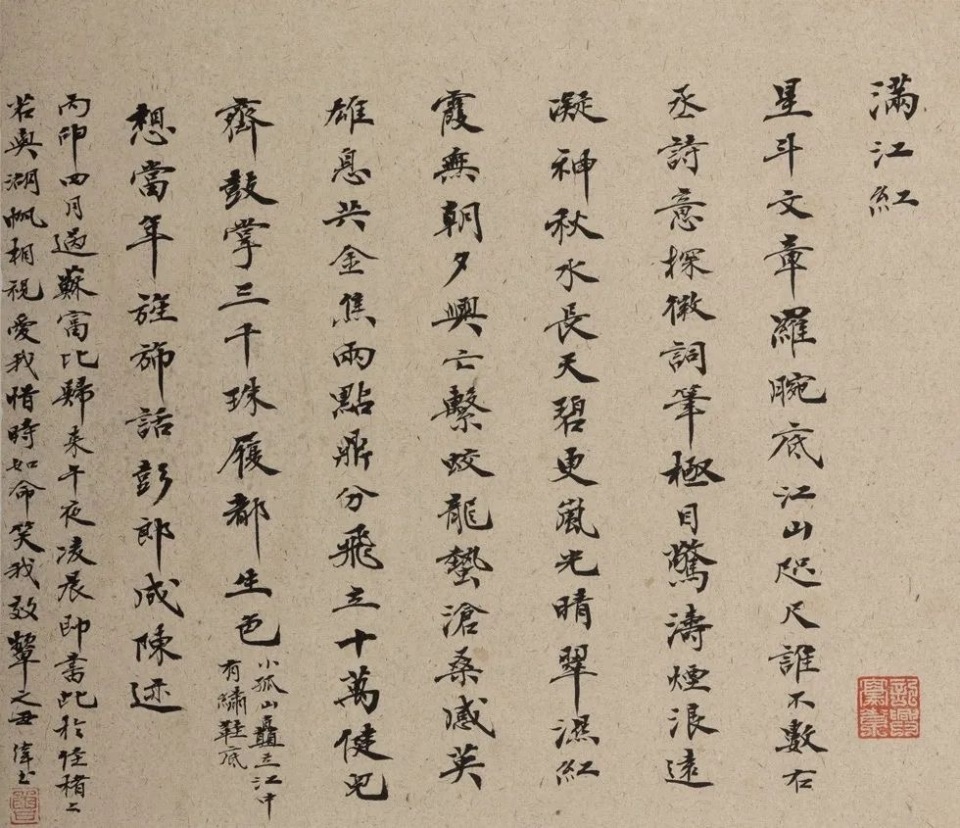 滿江紅
星斗文章羅腕底江山咫尺誰不數右
丞詩意探微詞筆極目驚濤煙浪遠
凝神秋水長天碧更嵐光晴翠濕紅
霞無朝夕興亡繫蛟龍蟄滄桑感英
雄息共金焦兩點鼎分飛立十萬健兒
齊鼓掌三千珠履都生色
小孤山矗立江中
有繡鞋底
想當年旌旆話彭郎成陳迹
丙卯四月過蘇富比歸来午夜凌晨即書此於佳楮上
若與湖帆相視愛我惜時如命笑我效颦之丑